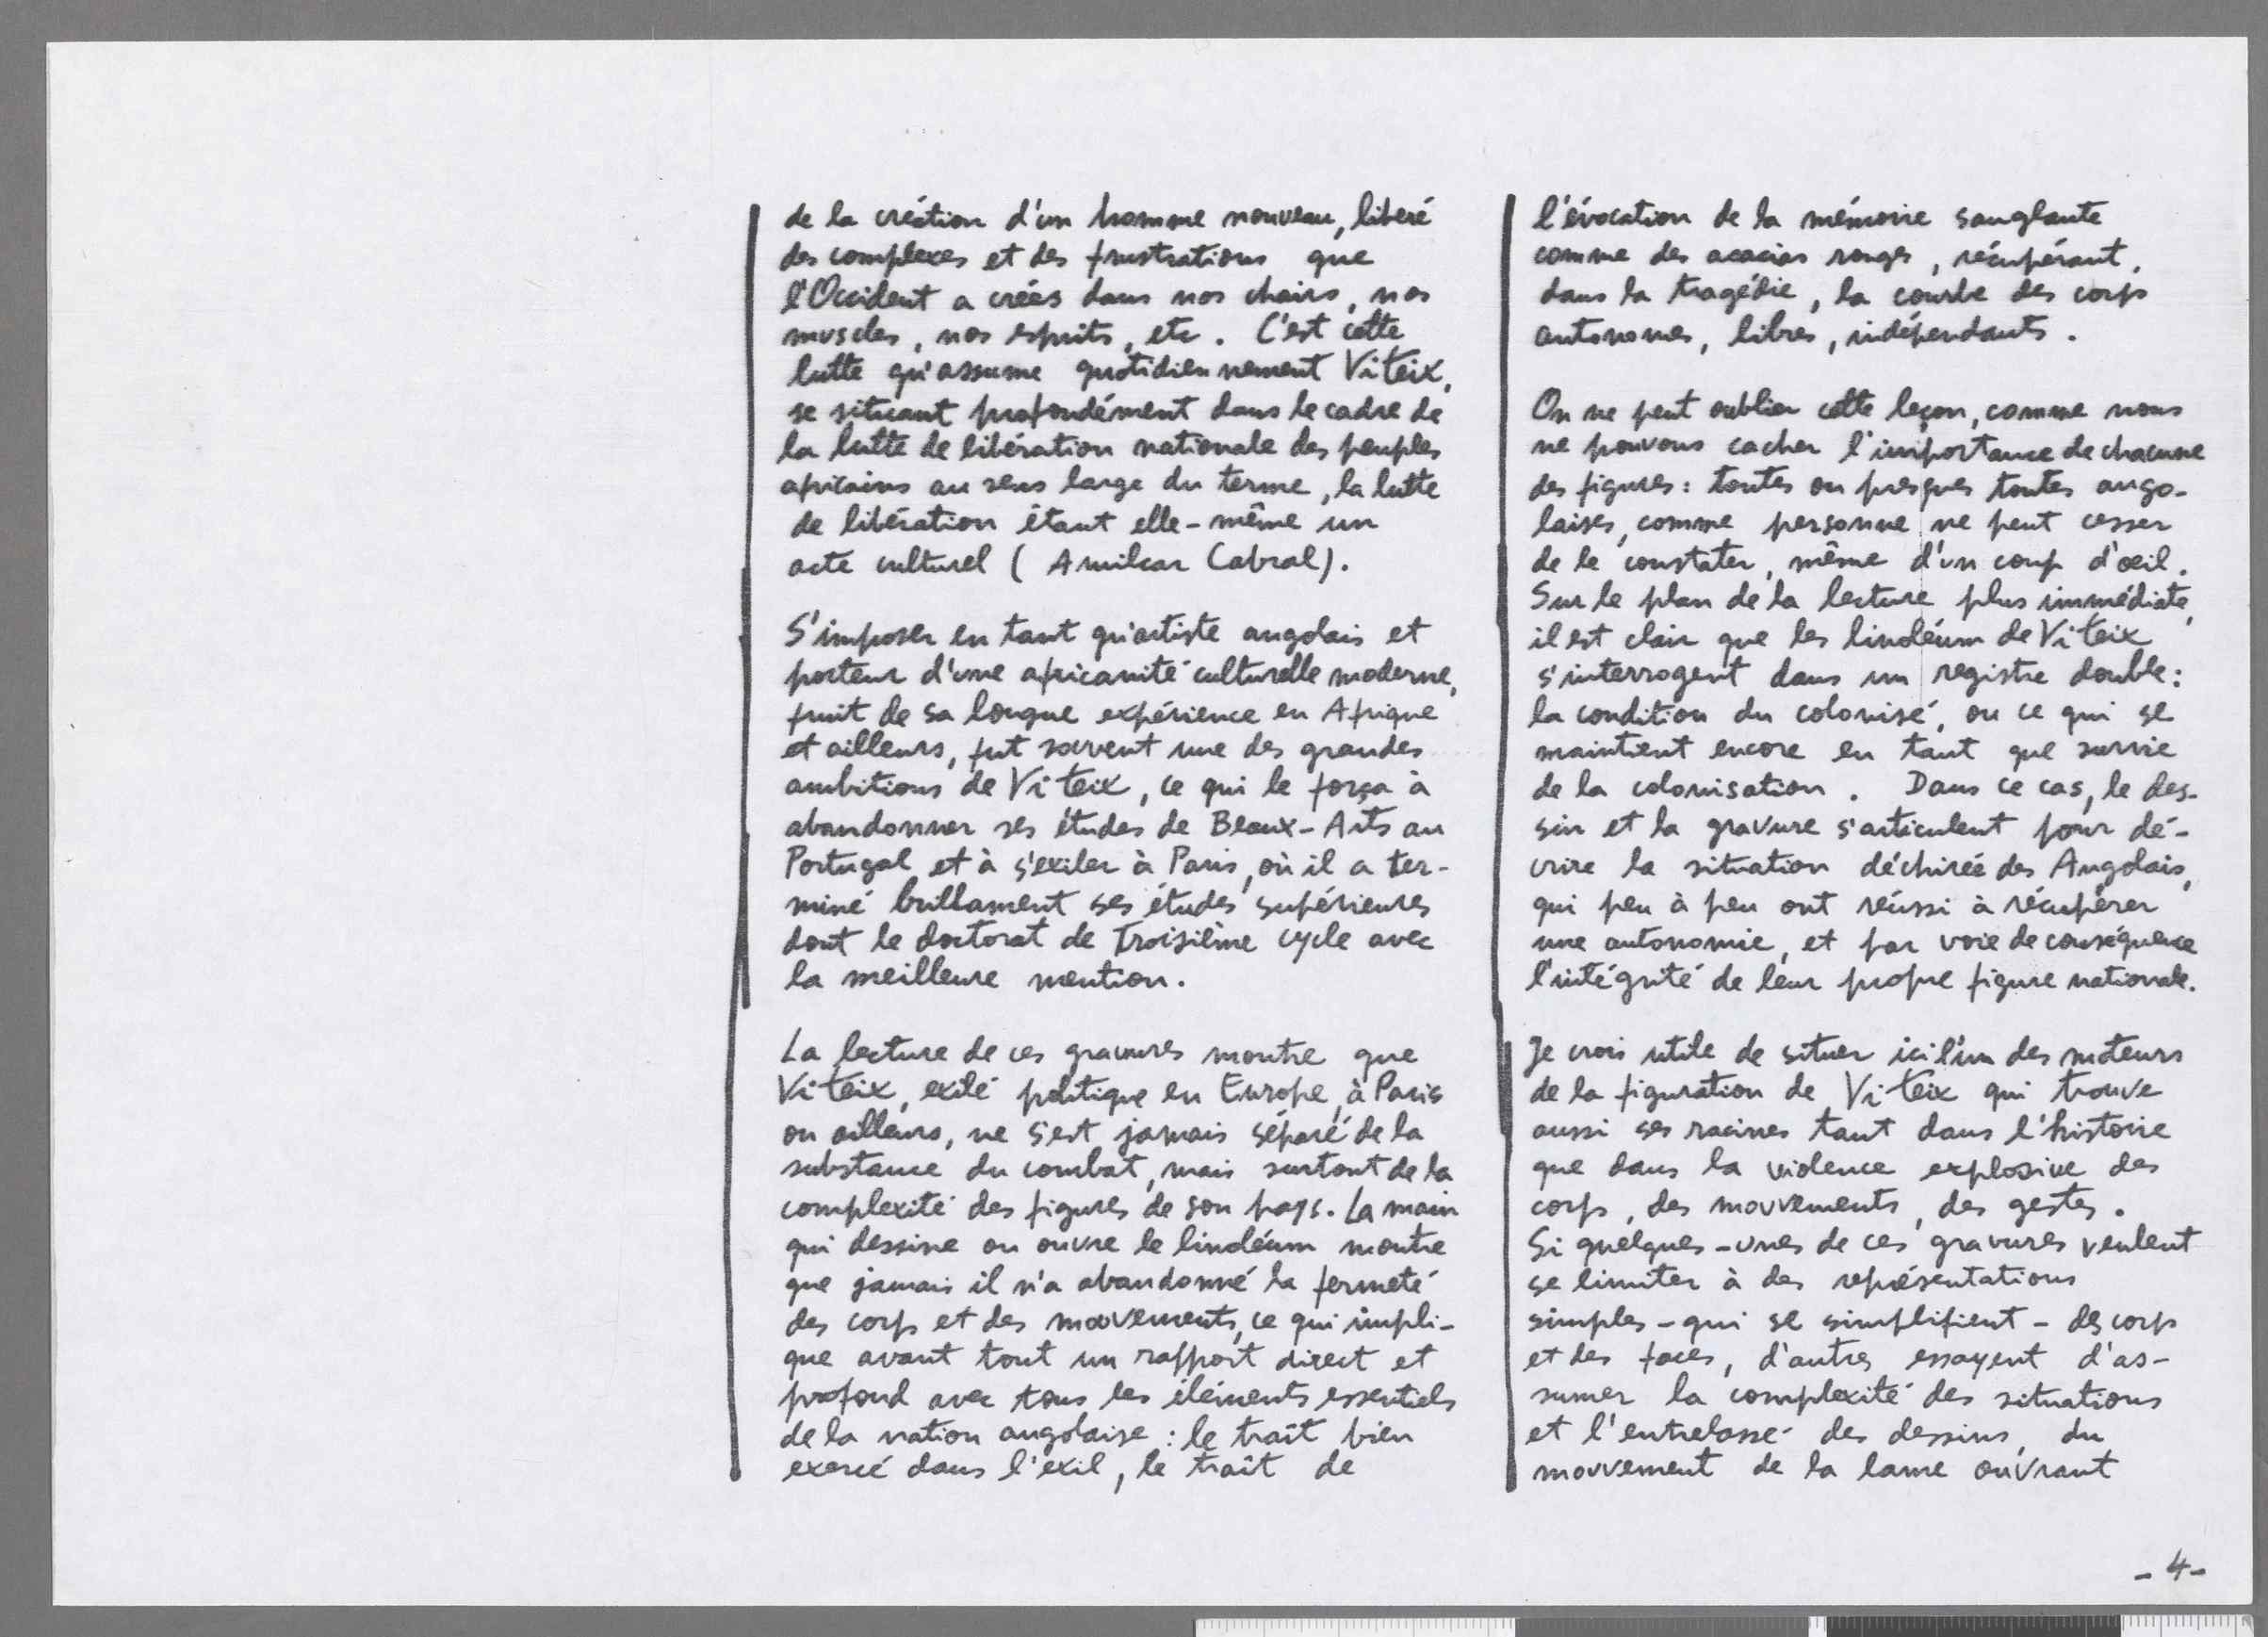 de la création d'un homme nouveau, liberé
des complexes et des frustrations que
l'Occident a créés dans nos chairs, nos
muscles, nos esprits, etc. C'est cette
lutte qu'assume quotidiennement Viteix,
se situant profondément dans le cadre de
la lutte de libération nationale des peuples
africains au sens large du terme, la lutte
de libération étant elle-même un
acte culturel (Amilcar Cabral).
S'imposer en tant qu'artiste angolais et
porteur d'une africanité culturelle moderne,
fruit de sa longue expérience en Afrique
et ailleurs, fut souvent une des grandes
ambitions de Viteix, ce qui le força à
abandonner ses études de Beaux-Arts au
Portugal et à s'exiler à Paris, où il a ter-
miné brillament ses études supérieures
dont le doctorat de Troisième cycle avec
la meilleure mention.
La lecture de ces gravures montre que
Viteix, exilé politique en Europe, à Paris
ou ailleurs, ne s'est jamais séparé de la
substance du combat, mais surtout de la
complexité des figures de son pays. La main
qui dessine ou ouvre le linoléum montre
que jamais il n'a abandonné la fermeté
des corps et des mouvements, ce qui impli-
que avant tout un rapport direct et
profond avec tous les éléments essentiels
de la nation angolaise : le traît bien
exercé dans l'exil, le traît de
l'évocation de la mémoire sanglante
comme des acacias rouges, récupérant,
dans la tragédie, la courbe des corps
autonomes, libres, indépendants.
On ne peut oublier cette leçon, comme nous
ne pouvons cacher l'importance de chacune
des figures : toutes ou presques toutes ango-
laises, comme personne ne peut cesser
de le constater, même d'un coup d'œil.
Sur le plan de la lecture plus immédiate,
il est clair que les linoléum de Viteix
s'interrogent dans un registre double :
la condition du colonisé, ou ce qui se
maintient encore en tant que survie
de la colonisation. Dans ce cas, le des-
sin et la gravure s'articulent pour dé-
crire la situation déchirée des Angolais,
qui peu à peu ont réussi à récupérer
une autonomie, et par voie de conséquence
l'intégrité de leur propre figure nationale.
Je crois utile de situer ici l'un des moteurs
de la figuration de Viteix qui trouve
aussi ses racines tant dans l'histoire
que dans la violence explosive des
corps, des mouvements, des gestes.
Si quelques-unes de ces gravures veulent
se limiter à des représentations
simples - qui se simplifient - des corps
et des faces, d'autres essayent d'as-
sumer la complexité des situations
et l'entrelassé des dessins, du
mouvement de la lame ouvrant
- 4 -